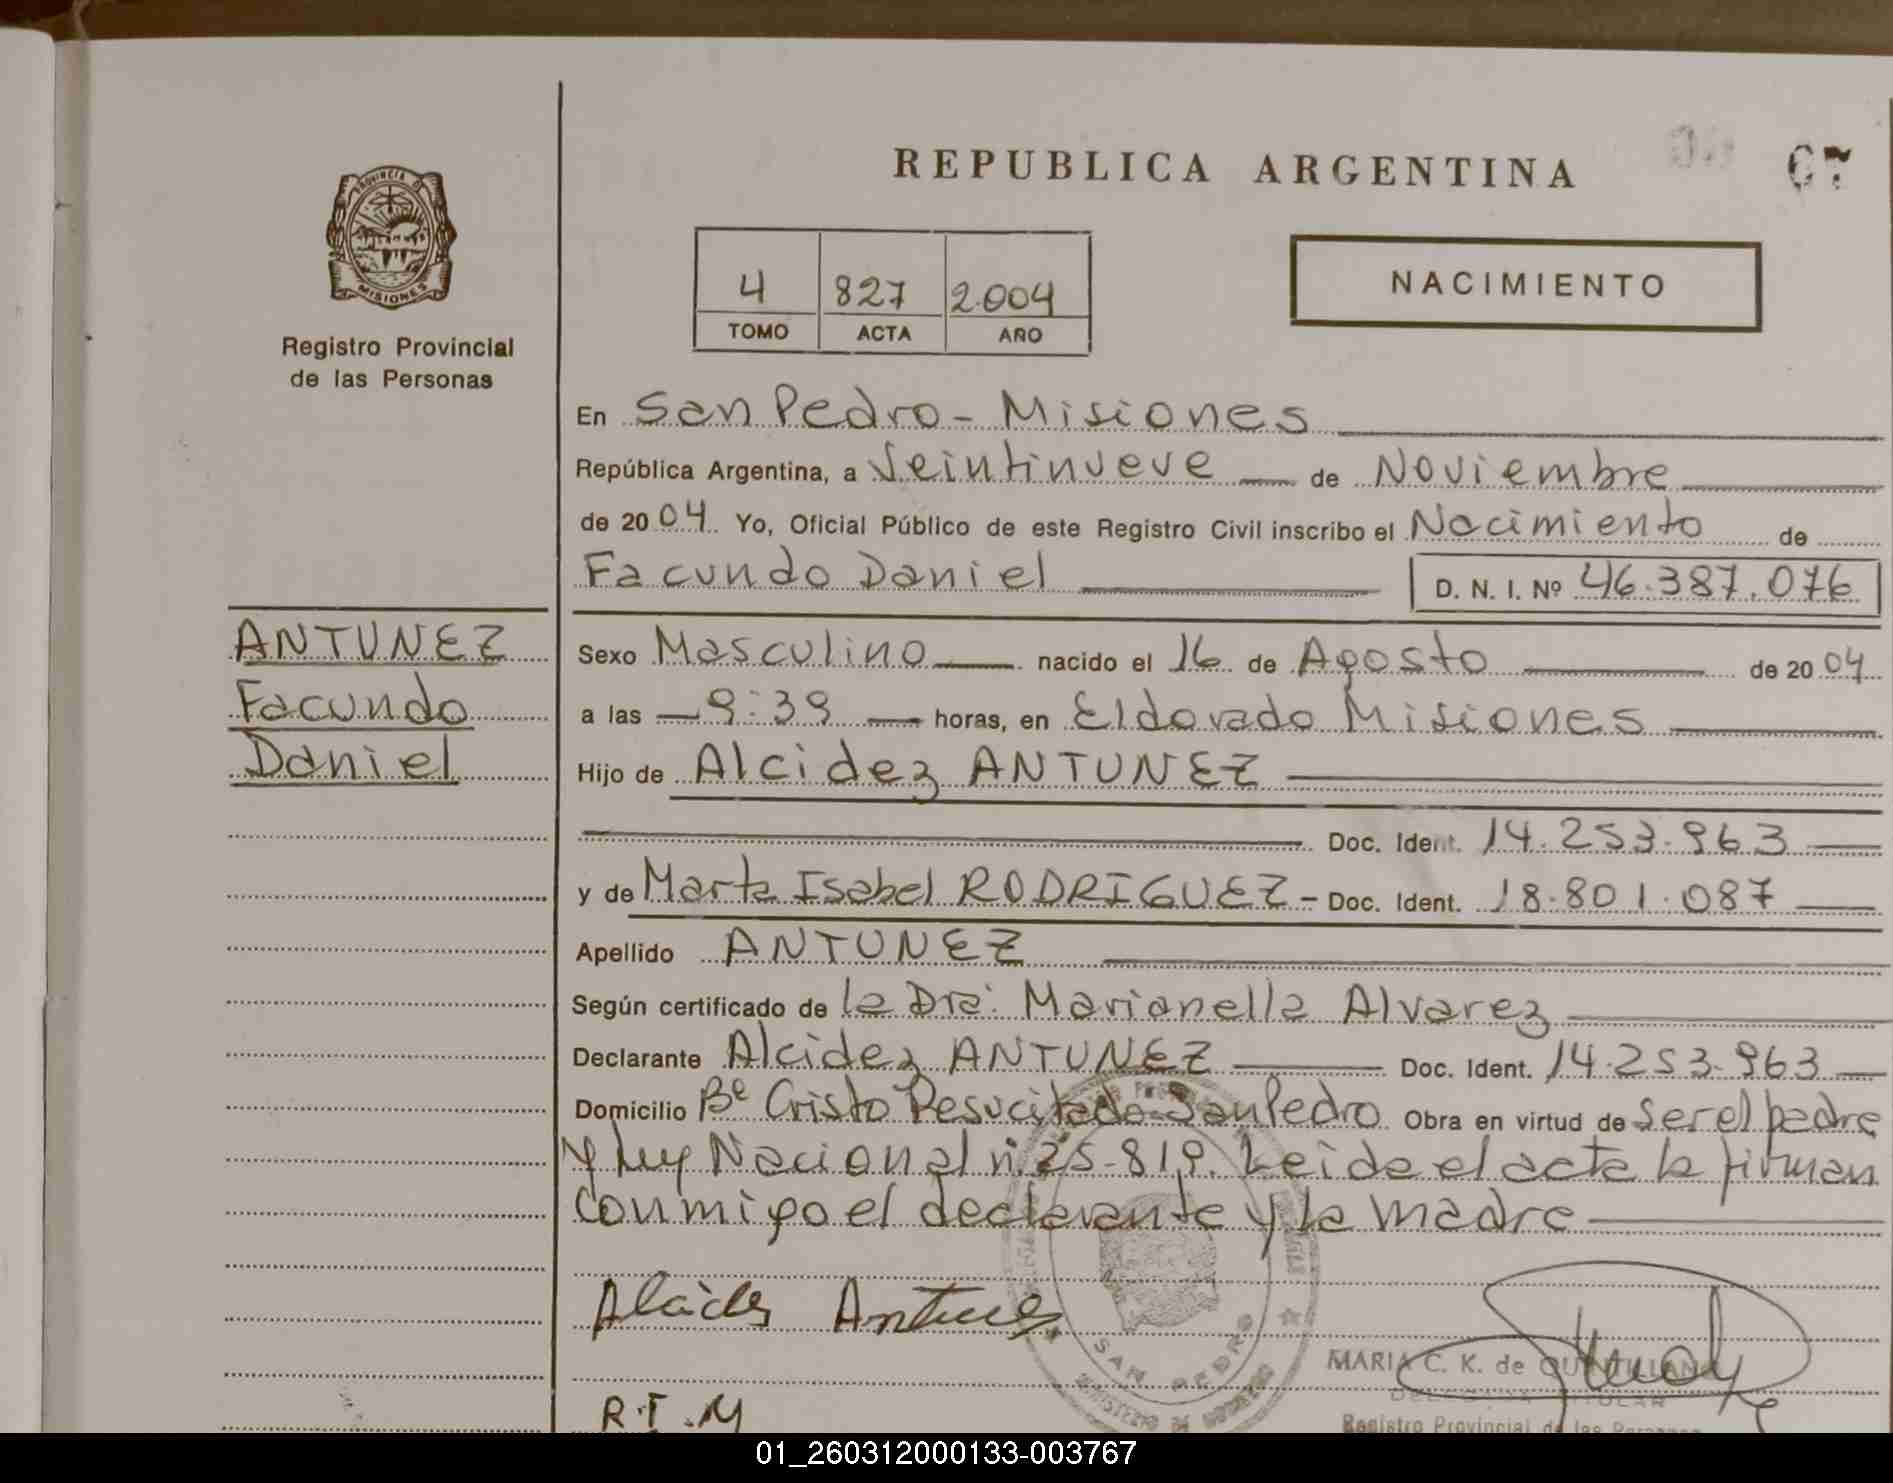 PROVINCIA D
MISIONES
Registro Provincial
de las Personas
REPUBLICA ARGENTINA
67
4 827 2.004
TOMO ACTA AÑO
NACIMIENTO
En San Pedro - Misiones
República Argentina, a Veintinueve de Noviembre
de 20 04 Yo, Oficial Público de este Registro Civil inscribo el Nacimiento de
Facundo Daniel D. N. I. Nº 46.387.076
ANTUNEZ
Facundo
Daniel
Sexo Masculino nacido el 16 de Agosto de 20 04
a las 9:39 horas, en Eldorado Misiones
Hijo de Alcidez ANTUNEZ
Doc. Ident. 14.253.963
y de Marta Isabel RODRIGUEZ - Doc. Ident. 18.801.087
Apellido ANTUNEZ
Según certificado de la Dra. Marianella Alvarez
Declarante Alcidez ANTUNEZ Doc. Ident. 14.253.963
Domicilio Bº Cristo Resucitado San Pedro Obra en virtud de ser el padre
y Ley Nacional nº 25.819. Leida el acta la firman
conmigo el declarante y la madre
Alcides Antunes
SAN PEDRO
MARIA C. K. de
TITULAR
R.I.M
Registro Provincial de las Personas
01_260312000133-003767